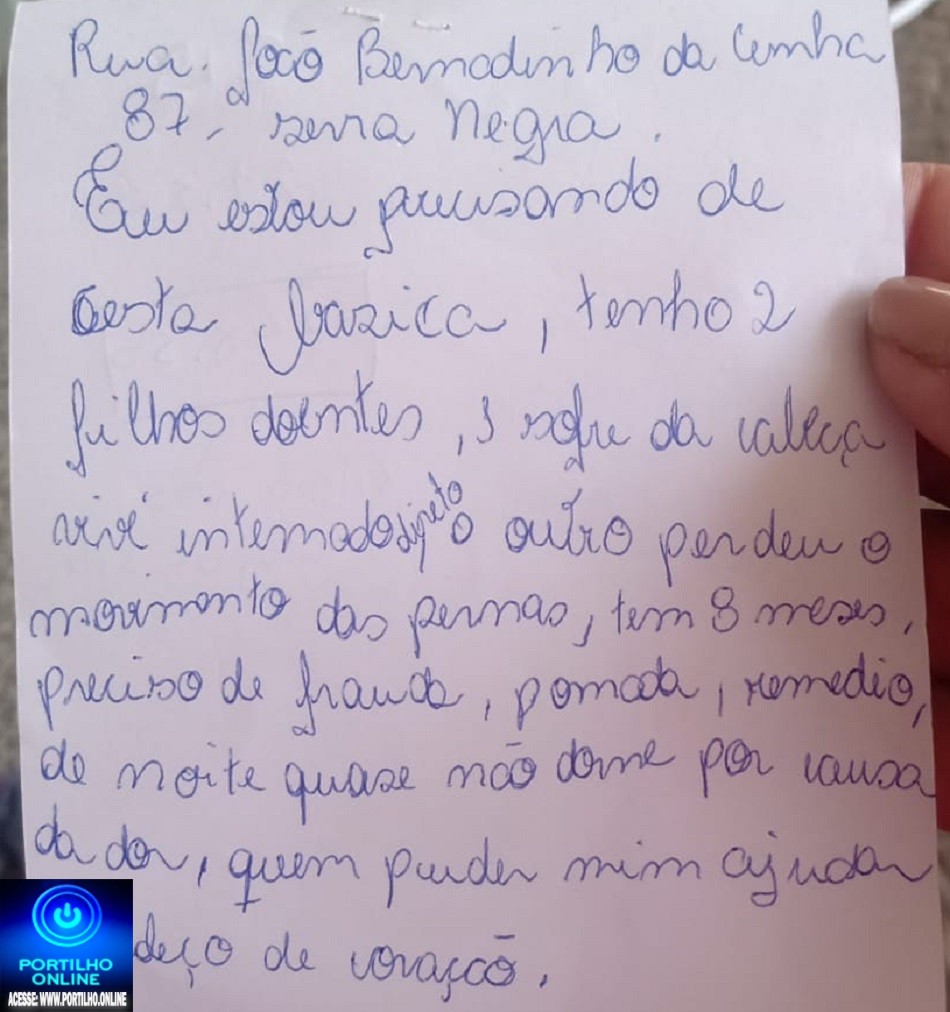 Rua. João Bernadinho da Cunha
87, serra Negra.
Eu estou precisando de
Cesta bazica, tenho 2
filhos doentes, 1 sofre da cabeça
vive internado direto o outro perdeu o
movimento das pernas, tem 8 meses,
preciso de frauda, pomada, remedio,
de noite quase não dorme por causa
da dor, quem puder mim ajudar
deço de coração.
PORTILHO
ONLINE
ACESSE: WWW.PORTILHO.ONLINE